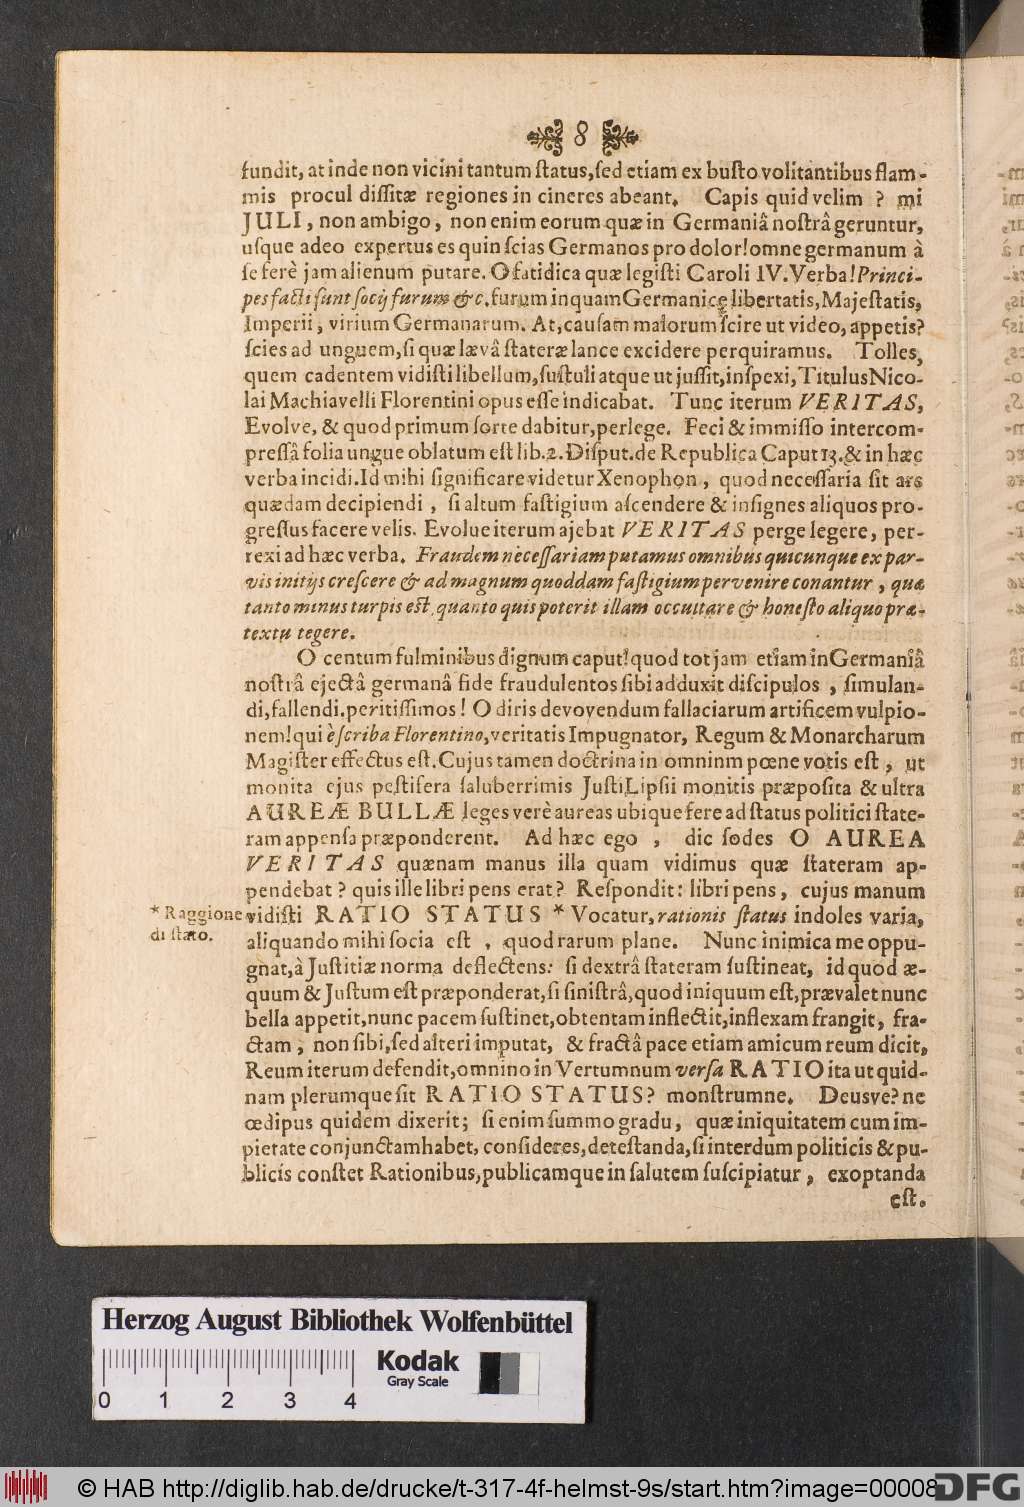 8
fundit, at inde non vicini tantum ſtatus, ſed etiam ex buſto volitantibus flam-
mis procul diſſitæ regiones in cineres abeant. Capis quid velim ? mi
JULI, non ambigo, non enim eorum quæ in Germaniâ noſtrâ geruntur,
uſque adeo expertus es quin ſcias Germanos pro dolor! omne germanum à
ſe ferè jam alienum putare. O fatidica quæ legiſti Caroli IV. Verba! Princi-
pes facti ſunt ſocij furum &c. furum inquam Germanicę libertatis, Majeſtatis,
Imperii, virium Germanarum. At, cauſam malorum ſcire ut video, appetis?
ſcies ad unguem, ſi quæ lævâ ſtateræ lance excidere perquiramus. Tolles,
quem cadentem vidiſti libellum, ſuſtuli atque ut juſſit, inſpexi, Titulus Nico-
lai Machiavelli Florentini opus eſſe indicabat. Tunc iterum VERITAS,
Evolve, & quod primum ſorte dabitur, perlege. Feci & immiſſo intercom-
preſſâ folia ungue oblatum eſt lib. 2. Diſput. de Republica Caput 13. & in hæc
verba incidi. Id mihi ſignificare videtur Xenophon, quod neceſſaria ſit ars
quædam decipiendi, ſi altum faſtigium aſcendere & inſignes aliquos pro-
greſſus facere velis. Evolue iterum ajebat VERITAS perge legere, per-
rexi ad hæc verba. Fraudem neceſſariam putamus omnibus quicunque ex par-
vis initijs creſcere & ad magnum quoddam faſtigium pervenire conantur, quæ
tanto minus turpis eſt, quanto quis poterit illam occultare & honeſto aliquo præ-
textu tegere.
O centum fulminibus dignum caput! quod tot jam etiam in Germaniâ
noſtrâ ejectâ germanâ fide fraudulentos ſibi adduxit diſcipulos, ſimulan-
di, fallendi. peritiſſimos! O diris devovendum fallaciarum artificem vulpio-
nem! qui è ſcriba Florentino, veritatis Impugnator, Regum & Monarcharum
Magiſter effectus eſt. Cujus tamen doctrina in omninm pœne votis eſt, ut
monita ejus peſtifera ſaluberrimis Juſti Lipſii monitis præpoſita & ultra
AUREÆ BULLÆ leges verè aureas ubique fere ad ſtatus politici ſtate-
ram appenſa præponderent. Ad hæc ego, dic ſodes O AUREA
VERITAS quænam manus illa quam vidimus quæ ſtateram ap-
pendebat ? quis ille libripens erat? Reſpondit: libripens, cujus manum
* Raggione vidiſti RATIO STATUS * Vocatur, rationis ſtatus indoles varia,
di ſtato. aliquando mihi ſocia eſt, quod rarum plane. Nunc inimica me oppu-
gnat, à Juſtitiæ norma deflectens: ſi dextrâ ſtateram ſuſtineat, id quod æ-
quum & Juſtum eſt præponderat, ſi ſiniſtrâ, quod iniquum eſt, prævalet nunc
bella appetit, nunc pacem ſuſtinet, obtentam inflectit, inflexam frangit, fra-
ctam, non ſibi, ſed alteri imputat, & fractâ pace etiam amicum reum dicit,
Reum iterum defendit, omnino in Vertumnum verſa RATIO ita ut quid-
nam plerumque ſit RATIO STATUS? monſtrumne. Deusve? ne
œdipus quidem dixerit; ſi enim ſummo gradu, quæ iniquitatem cum im-
pietate conjunctam habet, conſideres, deteſtanda, ſi interdum politicis & pu-
blicis conſtet Rationibus, publicamque in ſalutem ſuſcipiatur, exoptanda
eſt.
Herzog August Bibliothek Wolfenbüttel
Kodak
Gray Scale
0 1 2 3 4
© HAB http://diglib.hab.de/drucke/t-317-4f-helmst-9s/start.htm?image=00008
DFG